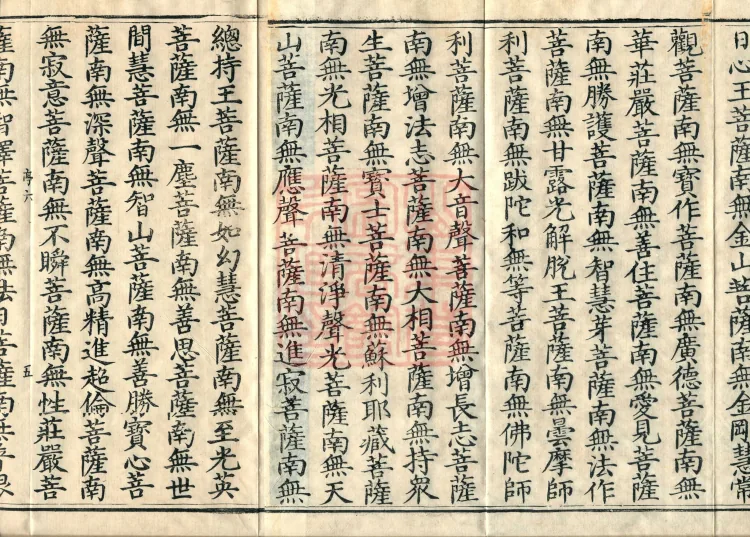 日心王菩薩南無金山菩薩南無金剛慧常
觀菩薩南無寶作菩薩南無廣德菩薩南無
華莊嚴菩薩南無善住菩薩南無愛見菩薩
南無勝護菩薩南無智慧芽菩薩南無法作
菩薩南無甘露光解脫王菩薩南無曇摩師
利菩薩南無跋陀和無等菩薩南無佛陀師
利菩薩南無大音聲菩薩南無增長志菩薩
南無增法志菩薩南無大相菩薩南無持衆
生菩薩南無寶士菩薩南無蘇利耶藏菩薩
南無光相菩薩南無清淨聲光菩薩南無天
山菩薩南無應聲菩薩南無進寂菩薩南無
總持王菩薩南無如幻慧菩薩南無至光英
菩薩南無一塵菩薩南無善思菩薩南無世
間慧菩薩南無智山菩薩南無善勝寶心菩
薩南無深聲菩薩南無高精進超倫菩薩南
無寂意菩薩南無不瞬菩薩南無性莊嚴菩
席六 五
薩南無智擇菩薩南無法自菩薩南無